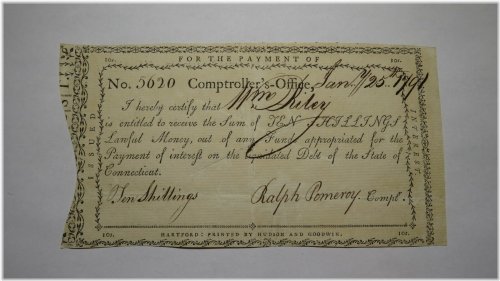 10s. FOR THE PAYMENT OF 10s.
No. 5620 Comptroller's-Office, Jan'y 25th 1791
I hereby certify that Wm Riley
is entitled to receive the Sum of TEN SHILLINGS
Lawful Money, out of any Fund appropriated for the
Payment of interest on the Liquidated Debt of the State of
Connecticut.
Ten Shillings Ralph Pomeroy. Compl'r.
10s. HARTFORD: PRINTED BY HUDSON AND GOODWIN. 10s.
ISSUED
INTEREST.